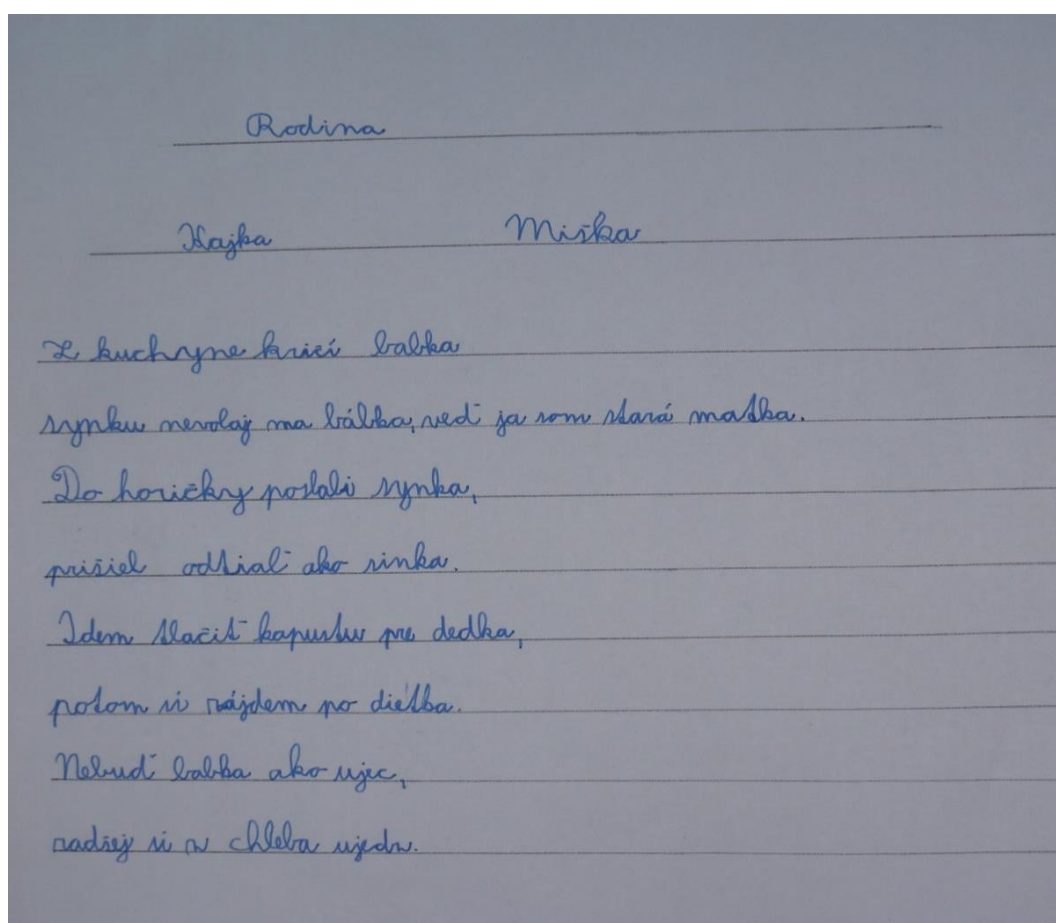 Rodina
Kajka Miška
Z kuchyne kričí babka
synku nevolaj ma bábka, veď ja som stará matka.
Do horičky poslali synka,
prišiel odtiaľ ako sinka.
Idem tlačiť kapustu pre dedka,
potom si zájdem po dieťba.
Nebuď babka ako ujec,
radšej si z chleba ujedz.